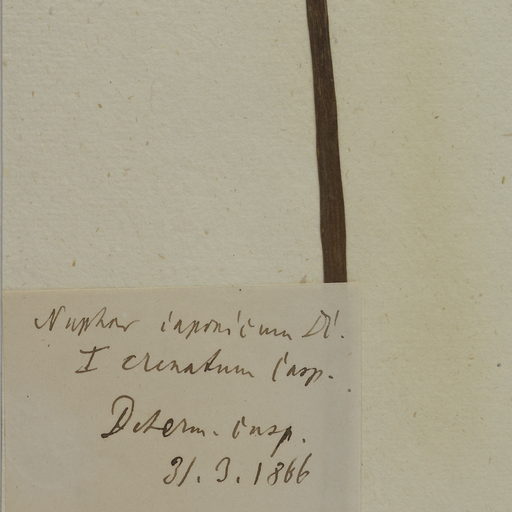 Nuphar iaponicum DC.
I crenatum Casp.
Determ. Casp.
31.3.1866